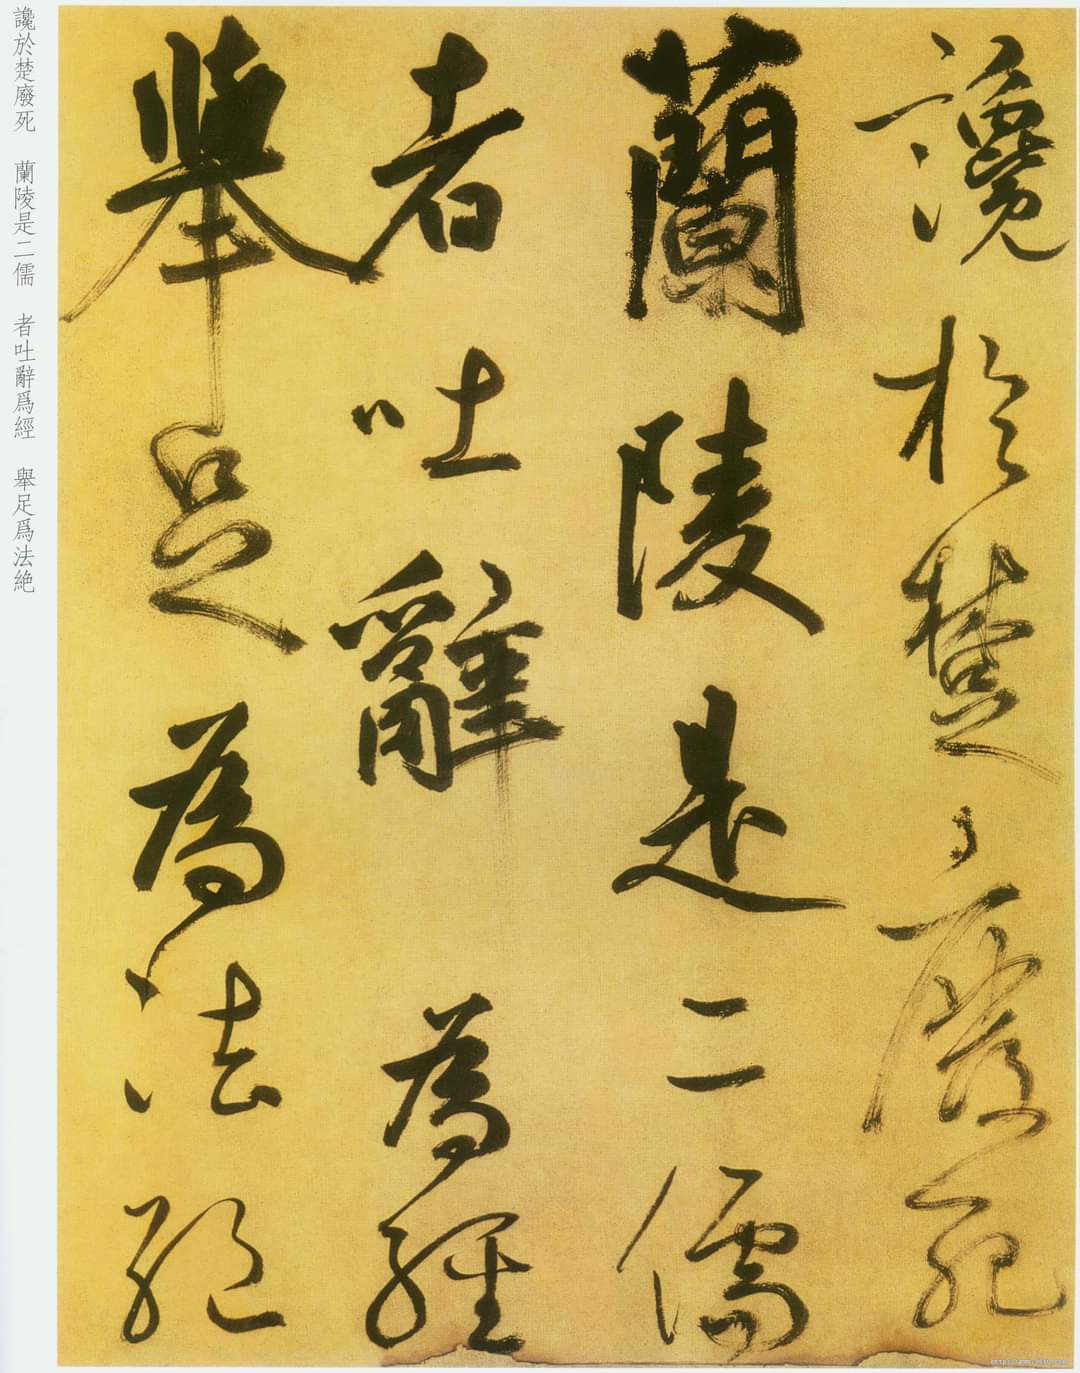 讒於楚廢死
蘭陵是二儒
者吐辭為經
舉足為法絶
讒於楚廢死　蘭陵是二儒　者吐辭爲經　舉足爲法絶